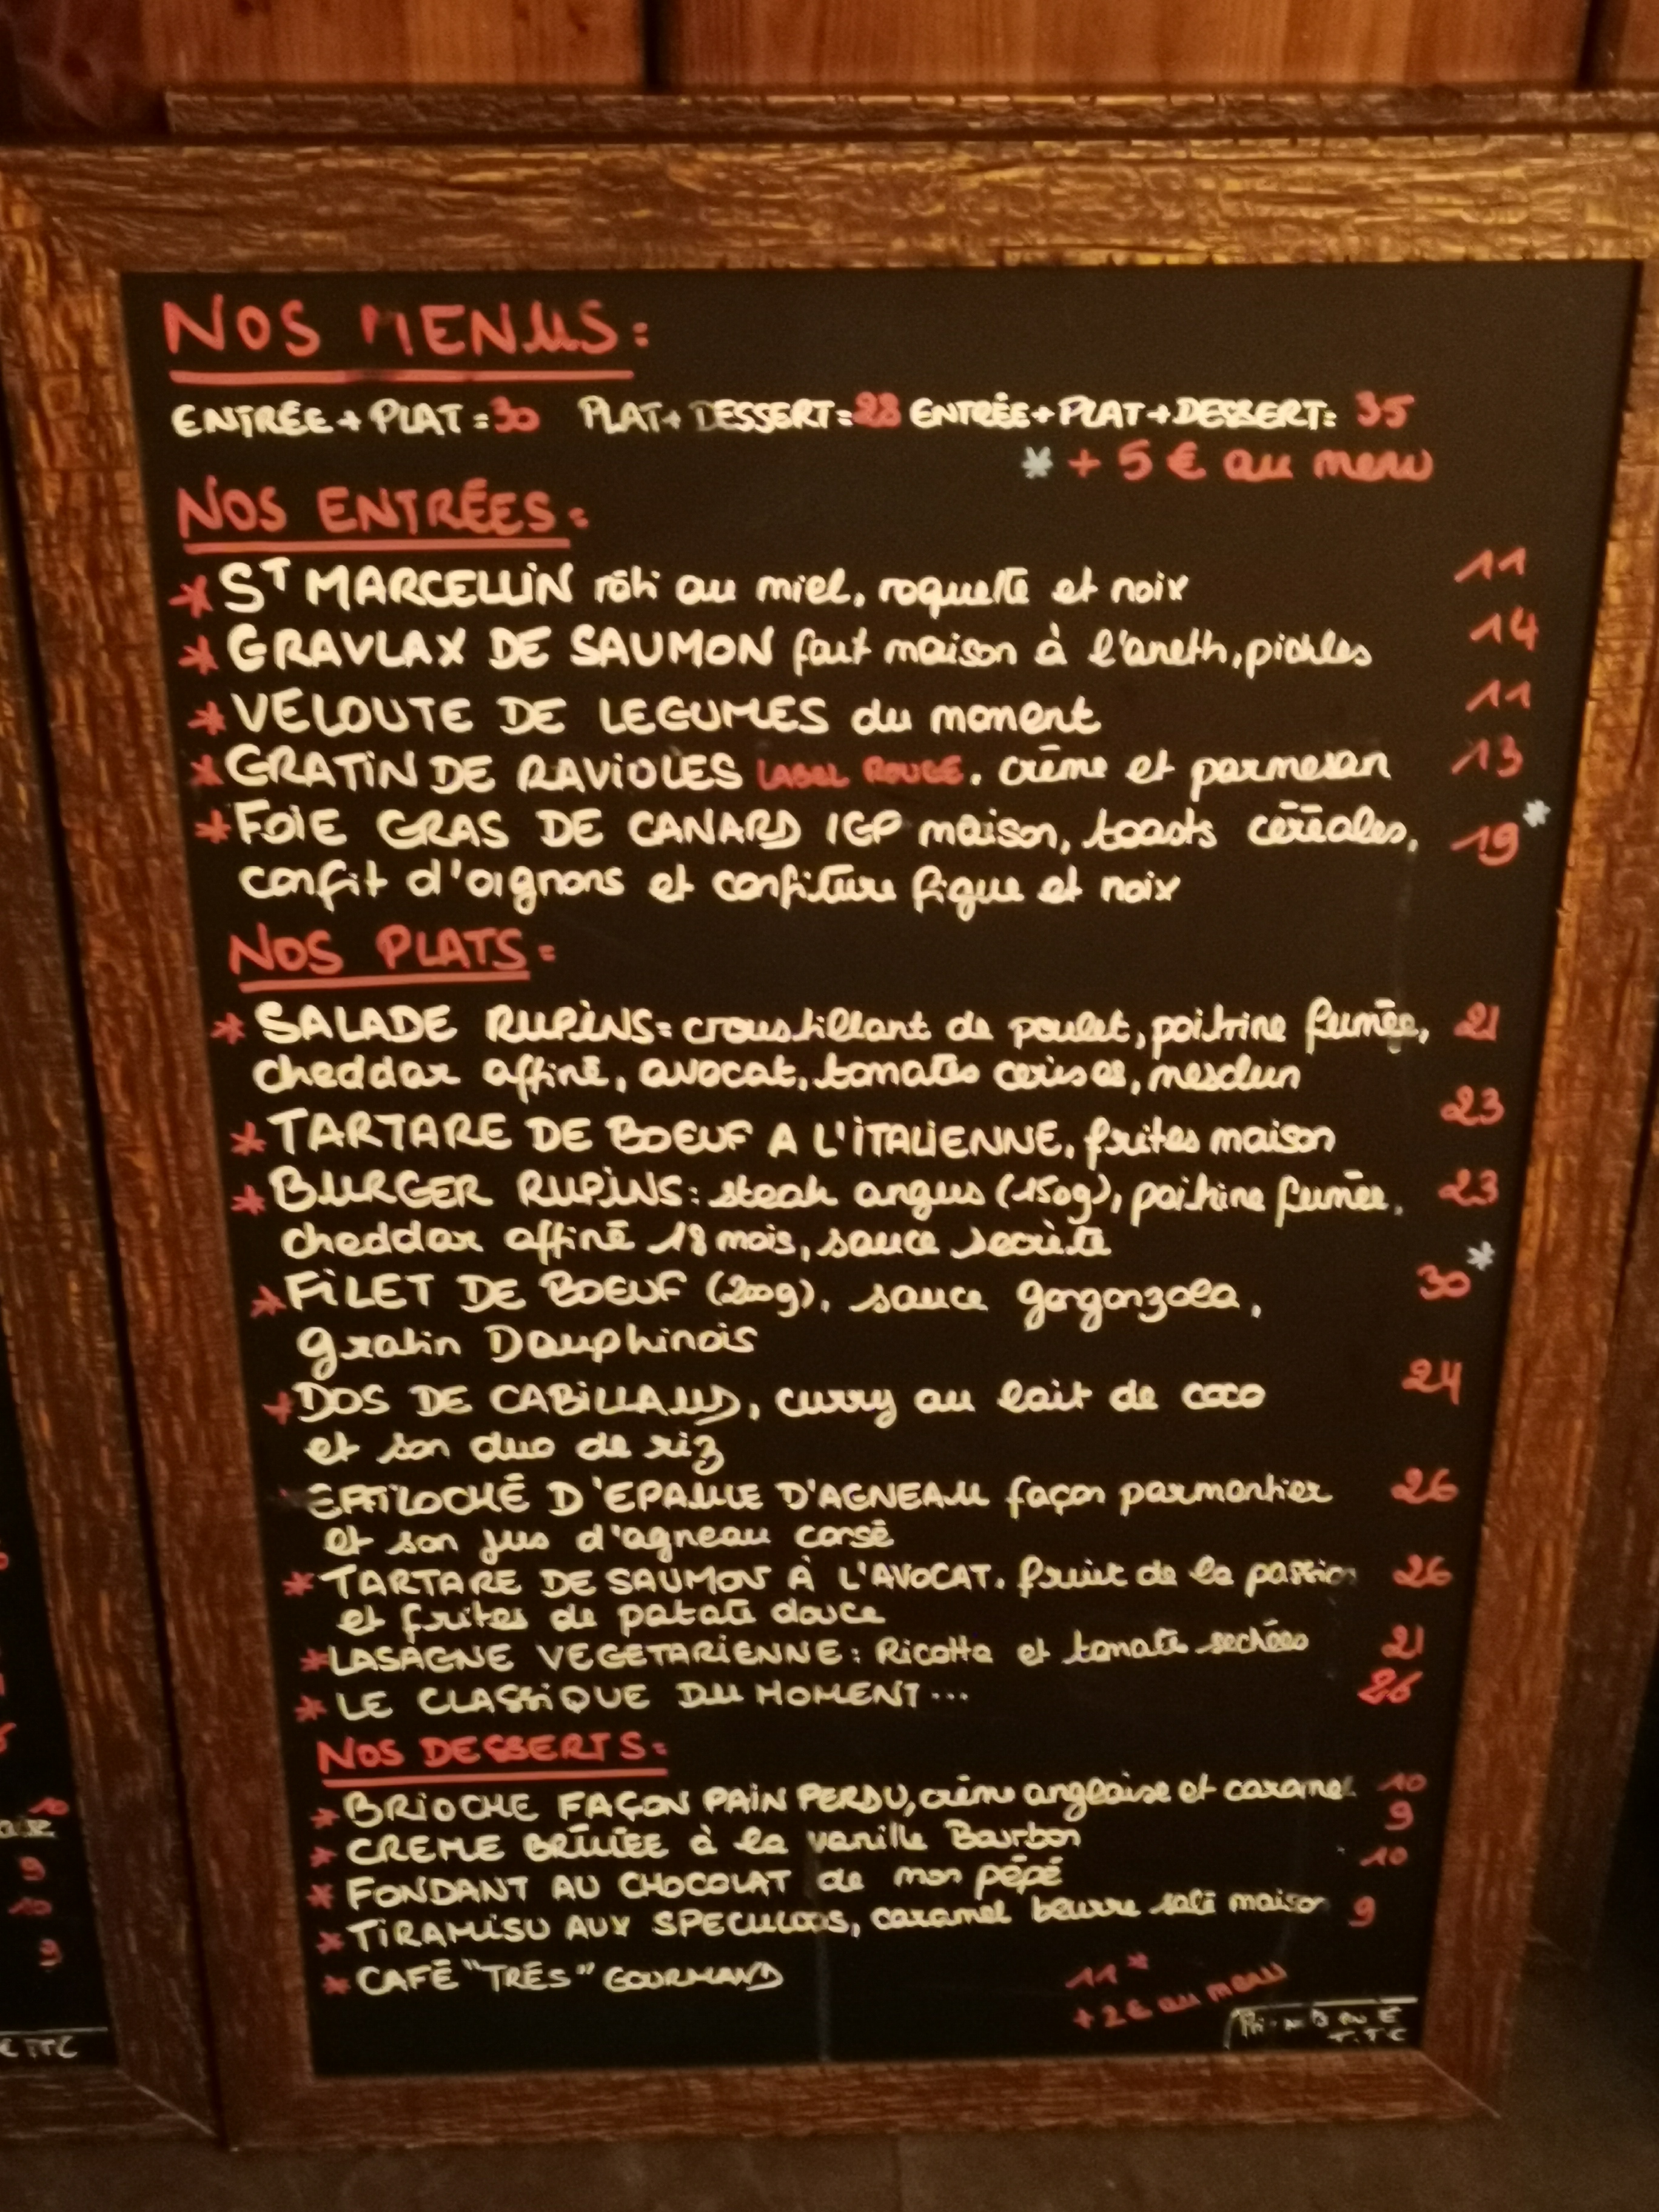 NOS MENUS:
ENTRÉE + PLAT = 30 PLAT + DESSERT = 28 ENTRÉE + PLAT + DESSERT = 35
* + 5 € au menu
NOS ENTRÉES:
* ST MARCELLIN rôti au miel, roquette et noix 11
* GRAVLAX DE SAUMON fait maison à l'aneth, pickles 14
* VELOUTE DE LEGUMES du moment 11
* GRATIN DE RAVIOLES LABEL ROUGE, crème et parmesan 13
* FOIE GRAS DE CANARD IGP maison, toasts céréales, 19*
confit d'oignons et confiture figue et noix
NOS PLATS:
* SALADE RUPINS: croustillant de poulet, poitrine fumée, 21
cheddar affiné, avocat, tomates cerises, mesclun
* TARTARE DE BOEUF A L'ITALIENNE, frites maison 23
* BURGER RUPINS: steak angus (150g), poitrine fumée, 23
cheddar affiné 18 mois, sauce secrète
* FILET DE BOEUF (200g), sauce gorgonzola, 30*
gratin Dauphinois
* DOS DE CABILLAUD, curry au lait de coco 24
et son duo de riz
EFFILOCHÉ D'EPAULE D'AGNEAU façon parmentier 26
et son jus d'agneau corsé
* TARTARE DE SAUMON À L'AVOCAT, fruit de la passion 26
et frites de patate douce
* LASAGNE VEGETARIENNE: Ricotta et tomate sechées 21
* LE CLASSIQUE DU MOMENT... 26
NOS DESSERTS:
* BRIOCHE FAÇON PAIN PERDU, crème anglaise et caramel 10
* CREME BRÛLÉE à la vanille Bourbon 9
* FONDANT AU CHOCOLAT de mon pépé 10
* TIRAMISU AUX SPECULOOS, caramel beurre salé maison 9
* CAFÉ "TRÈS" GOURMAND 11*
+ 2€ au menu
T.T.C
10
9
10
9
€ TTC